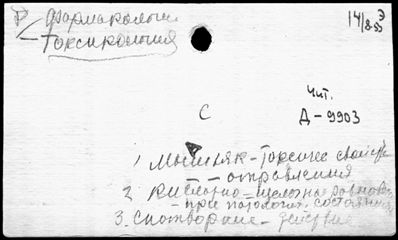 Р Фармакология
Токсикология
14/8-53 Э
Чит.
Д-9903
С
1 Мышьяк - токсичес свойств
- отравления
2 Кислотно-щелочное равновес
- при патологич. состояния
3. Снотворные - действие